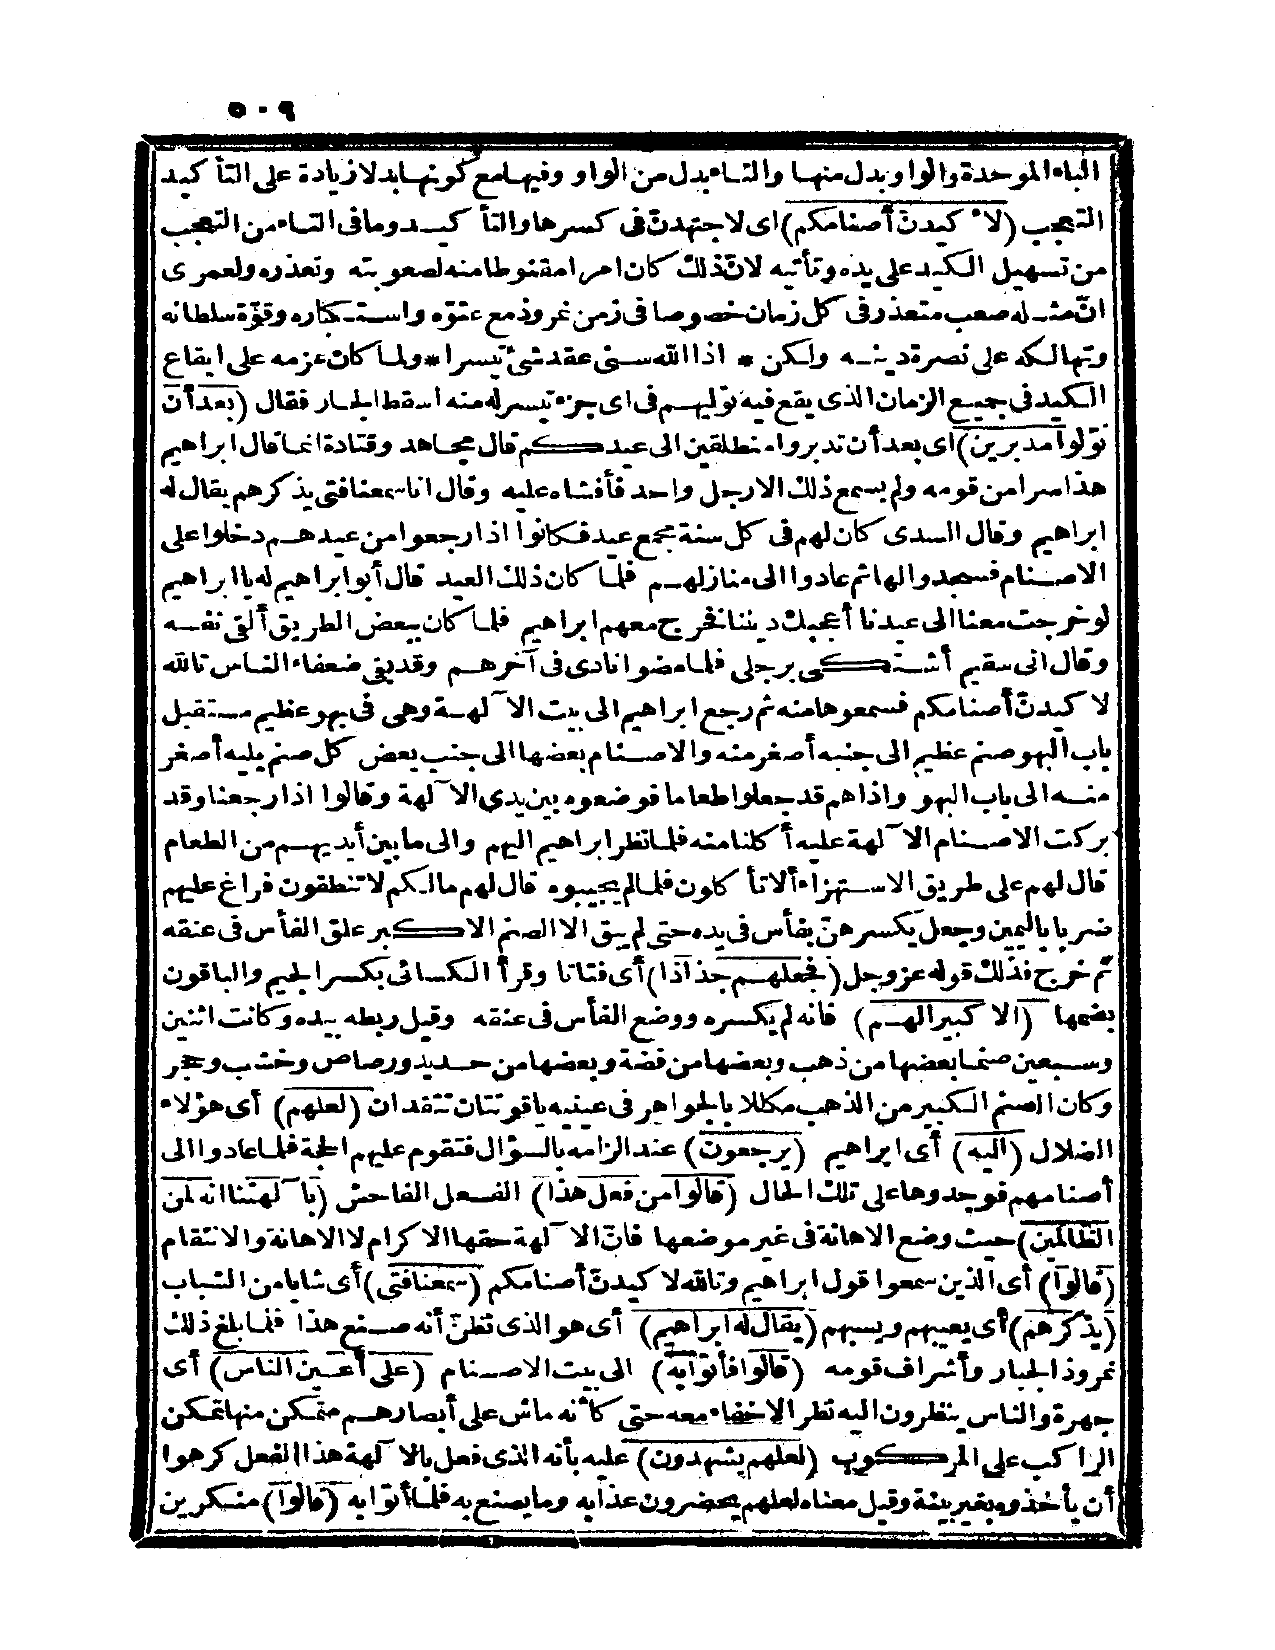 ٥٠٩
الباء الموحدة والواو بدل منها والتاء بدل من الواو وفيها مع كونها بدلا زيادة على التأكيد
التعجب (لأكيدن أصنامكم) اى لاجتهدنّ فى كسرها والتأكيد وما فى التاء من التعجب
من تسهيل الكيد على يده وتأتيه لانّ ذلك كان امرا مقنوطا منه لصعوبته وتعذره ولعمرى
انّ مثله صعب متعذر فى كل زمان خصوصا فى زمن نمروذ مع عتوّه واستكباره وقوّة سلطانه
وتهالكه على نصرة دينه ولكن * اذا الله سنى عقد شئ تيسرا * ولما كان عزمه على ايقاع
الكيد فى جميع الزمان الذى يقع فيه توليهم فى اى جزء تيسر له منه أسقط الجار فقال (بعد أن
تولوا مدبرين) اى بعد أن تدبروا منطلقين الى عيدكم قال مجاهد وقتادة انما قال ابراهيم
هذا سرا من قومه ولم يسمع ذلك الا رجل واحد فأفشاه عليه وقال انا سمعنا فتى يذكرهم يقال له
ابراهيم وقال السدى كان لهم فى كل سنة مجمع عيد فكانوا اذا رجعوا من عيدهم دخلوا على
الاصنام فسجدوا لها ثم عادوا الى منازلهم فلما كان ذلك العيد قال أبو ابراهيم له يا ابراهيم
لو خرجت معنا الى عيدنا أعجبك ديننا فخرج معهم ابراهيم فلما كان ببعض الطريق ألقى نفسه
وقال انى سقيم أشتكى برجلى فلما مضوا نادى فى آخرهم وقد بقى ضعفاء الناس تالله
لأكيدنّ أصنامكم فسمعوها منه ثم رجع ابراهيم الى بيت الآلهة وهى فى بهو عظيم مستقبل
باب البهو صنم عظيم الى جنبه أصغر منه والاصنام بعضها الى جنب بعض كل صنم يليه أصغر
منه الى باب البهو واذا هم قد جعلوا طعاما فوضعوه بين يدى الآلهة وقالوا اذا رجعنا وقد
بركت الاصنام الآلهة عليه أكلنا منه فلما نظر ابراهيم اليهم والى ما بين أيديهم من الطعام
قال لهم على طريق الاستهزاء ألا تأكلون فلما لم يجيبوه قال لهم مالكم لا تنطقون فراغ عليهم
ضربا باليمين وجعل يكسرهنّ بفأس فى يده حتى لم يبق الا الصنم الاكبر علق الفأس فى عنقه
ثم خرج فذلك قوله عز وجل (فجعلهم جذاذا) أى فتاتا وقرأ الكسائى بكسر الجيم والباقون
بضمها (الا كبيرا لهم) فانه لم يكسره ووضع الفأس فى عنقه وقيل ربطه بيده وكانت اثنين
وسبعين صنما بعضها من ذهب وبعضها من فضة وبعضها من حديد ورصاص وخشب وحجر
وكان الصنم الكبير من الذهب مكللا بالجواهر فى عينيه ياقوتتان تتقدان (لعلهم) أى هؤلاء
الضلال (اليه) أى ابراهيم (يرجعون) عند الزامه بالسؤال فتقوم عليهم الحجة فلما عادوا الى
أصنامهم فوجدوها على تلك الحال (قالوا من فعل هذا) الفعل الفاحش (بآلهتنا انه لمن
الظالمين) حيث وضع الاهانة فى غير موضعها فانّ الآلهة حقها الاكرام لا الاهانة والانتقام
(قالوا) أى الذين سمعوا قول ابراهيم وتالله لأكيدنّ أصنامكم (سمعنا فتى) أى شابا من الشباب
(يذكرهم) أى يعيبهم ويسبهم (يقال له ابراهيم) أى هو الذى نظنّ أنه صنع هذا فلما بلغ ذلك
نمروذ الجبار وأشراف قومه (قالوا فأتوا به) الى بيت الاصنام (على أعين الناس) أى
جهرة والناس ينظرون اليه نظرا لاخفاء معه حتى كأنه ماش على أبصارهم متمكن منها تمكن
الراكب على المركوب (لعلهم يشهدون) عليه بأنه الذى فعل بالآلهة هذا الفعل كرهوا
أن يأخذوه بغير بينة وقيل معناه لعلهم يحضرون عذابه وما يصنع به فلما أتوا به (قالوا) منكرين